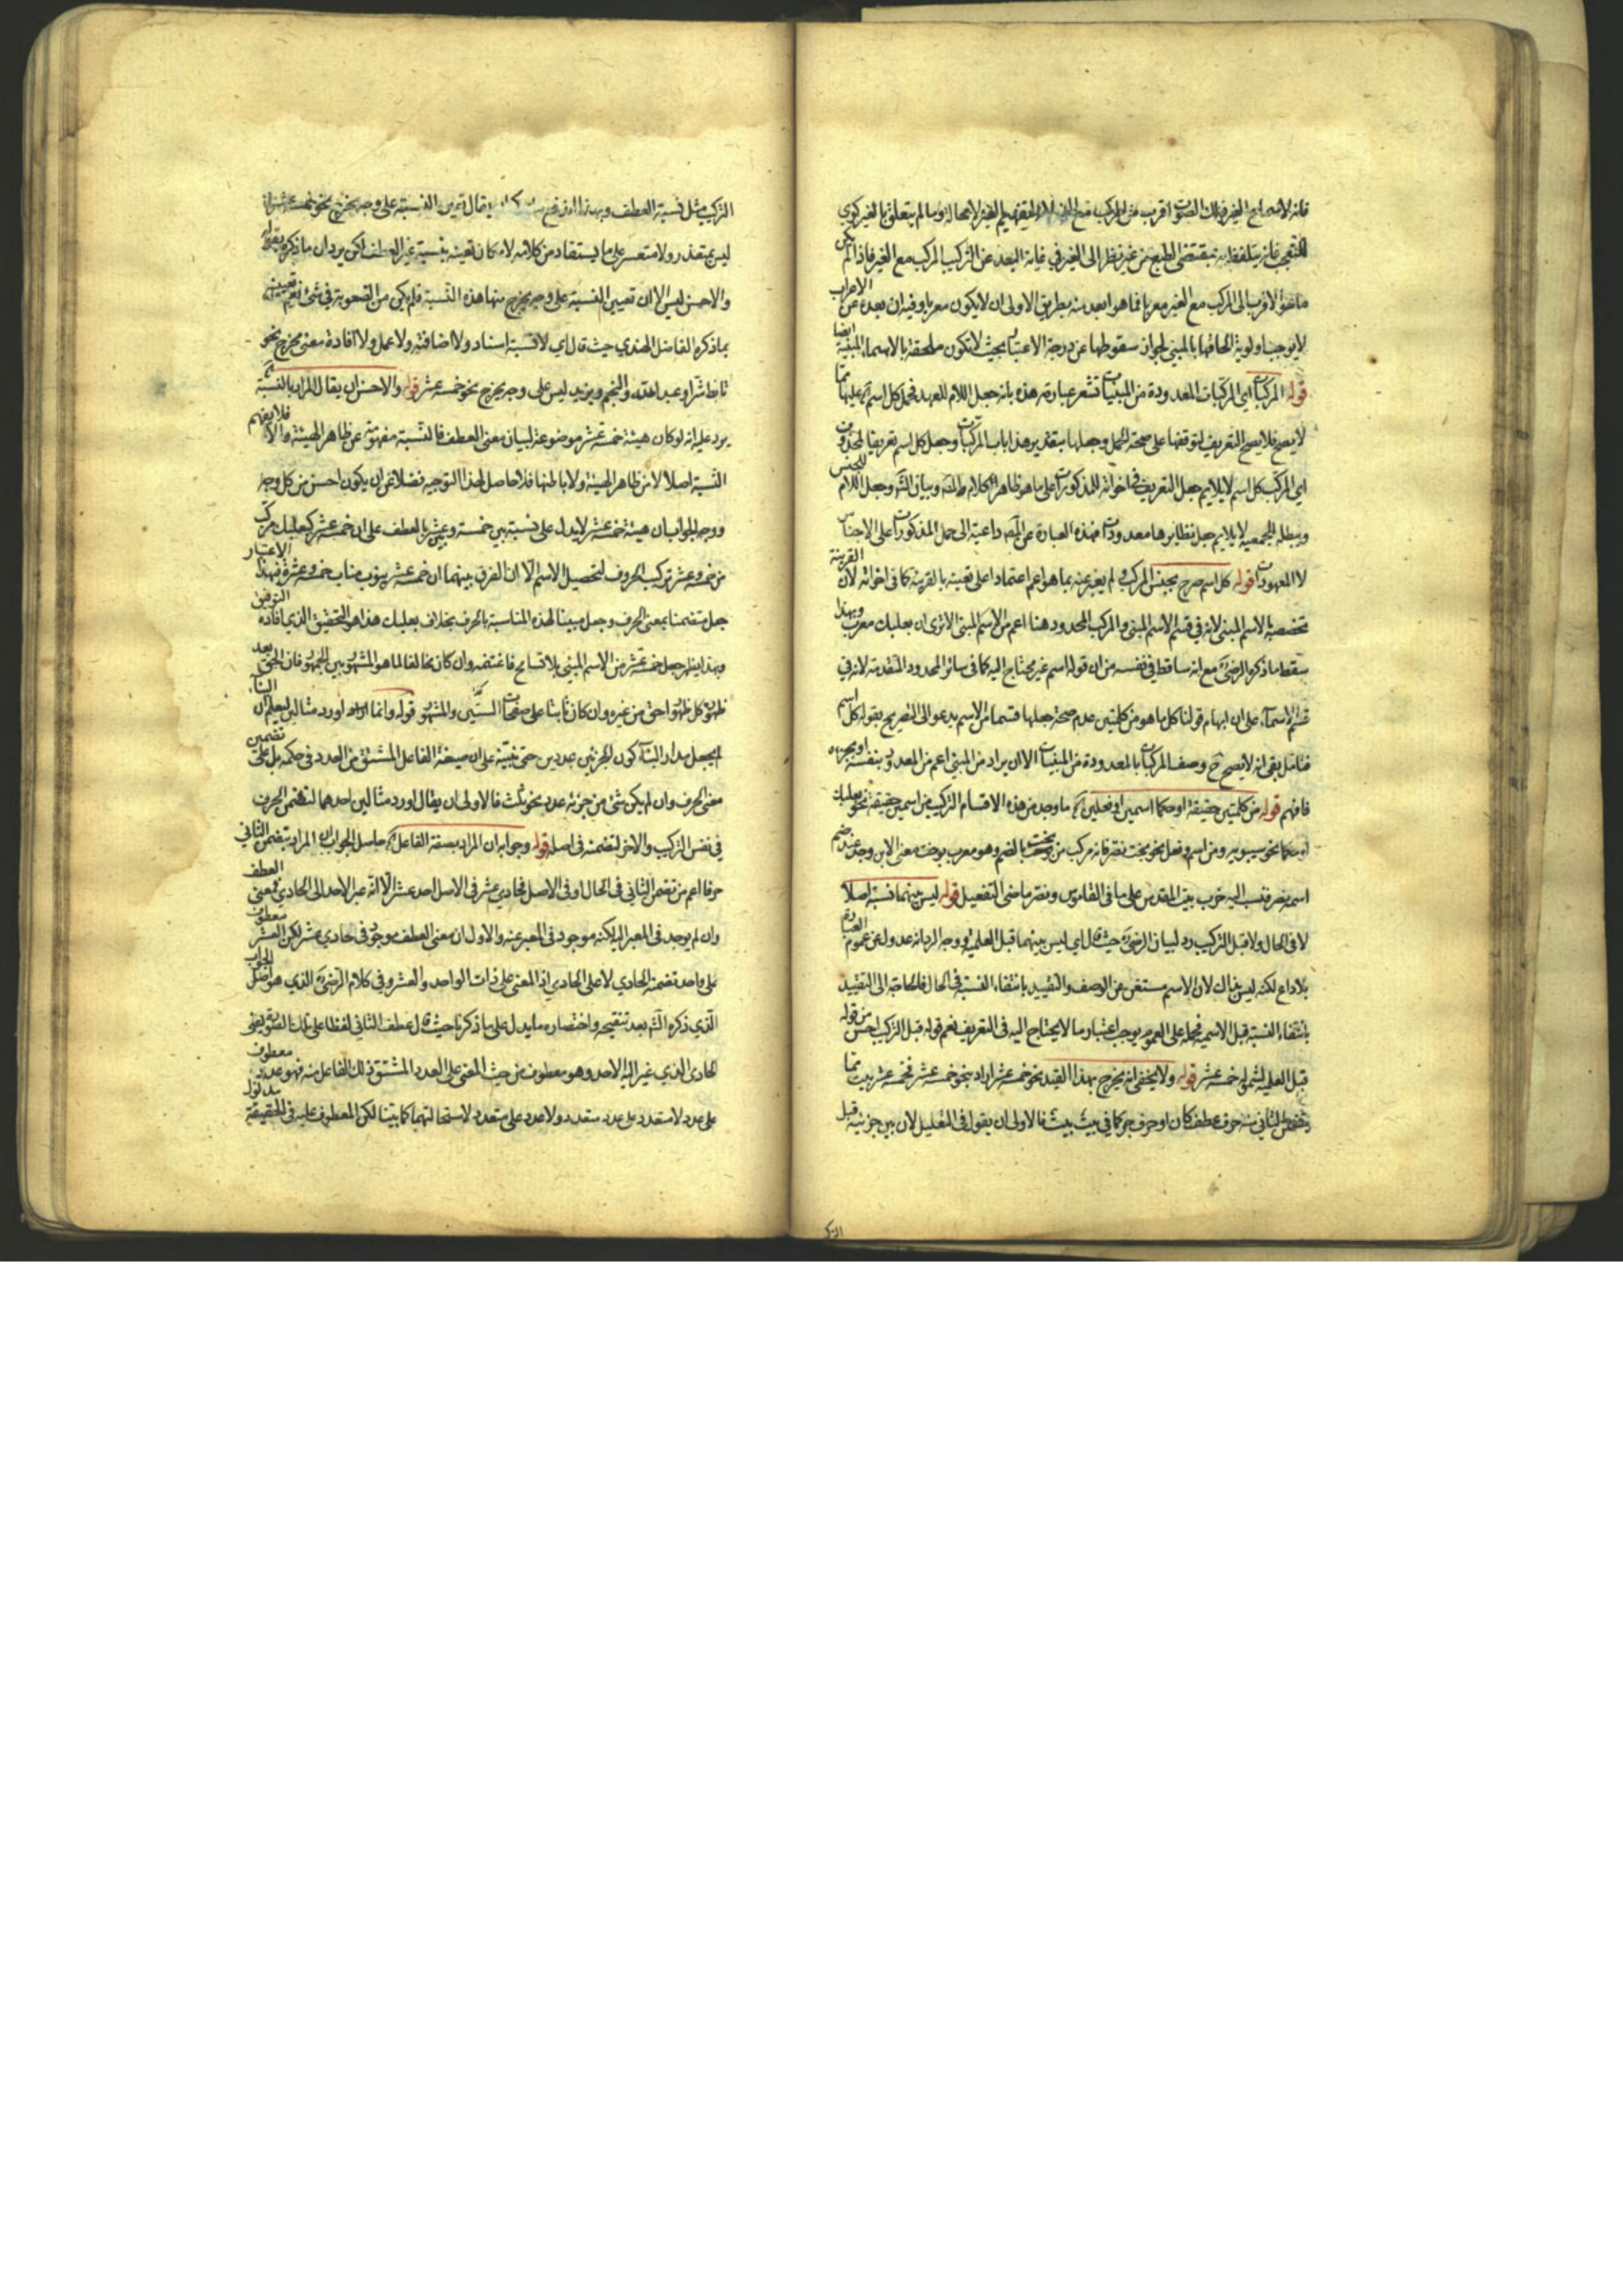 فانه لاسماع الغير فذلك الصوت اقرب من المركب مع الغير
للتعجب فانه يتلفظ به بمقتضى الطبع من غير نظر الى الغير في غاية البعد عن التركيب المركب مع الغير فاذا لم يكن
ما هو الاقرب الى المركب مع الغير معربا فما هو ابعد منه بطريق الاولى ان لا يكون معربا وفيه ان بعده عن الاعراب
لا يوجب اولوية الحاقها بالمبني لجواز سقوطها عن درجة الاعتبار بحيث لا تكون ملحقة بالاسماء المبنية ايضا
قوله المركبات اي المركبات المعدودة من المبنيات تشعر عبارته هذه بانه جعل اللام للعهد فحمل كل اسم آه عليها مما
لا يصح فلا يصح التعريف لتوقفها على صحة الحمل وجعلها بتقدير هذا باب المركبات وجعل كل اسم تعريفا لمحذوف
اي المركب كل اسم لا يلايم جعل التعريف في اخواته للمذكورات على ما هو ظاهر الكلام المص وبيان الش وجعل اللام للجنس
ويبطله الجمعية لا يلايم جعل نظايرها معدودات فهذه العبارة عن المص داعية الى حمل المذكورات على الاجناس
لا المعهودات قوله كل اسم صرح بجنس المركب ولم يعبر عنه بما هو اعم اعتمادا على تعينه بالقرينة كما في اخواته لان القرينة
تخصصه بالاسم المبني لانه في قسم الاسم المبني والمركب المحدود هنا اعم من الاسم المبني الا ترى ان بعلبك معرب وبهذا
سقط ما ذكره الرضي مع انه ساقط في نفسه من ان قوله اسم غير محتاج اليه كما في سائر الحدود المتقدمة لانه في
قسم الاسماء على ان ابهام قولنا كل ما هو من كلمتين عدم صحة جعلها قسما من الاسم يدعو الى التصريح بقوله كل اسم
فتامل بقي انه لا يصح ح وصف المركبات بالمعدودة من المبنيات الا ان يراد من المبني اعم من المعدود بنفسه او بجزئه
فافهم قوله من كلمتين حقيقة او حكما اسمين او فعلين آه ما وجد من هذه الاقسام التركيب من اسمين حقيقة نحو بعلبك
او حكما نحو سيبويه ومن اسم وفعل نحو بخت نصر فانه مركب من بوخت بالضم وهو معرب بوخت معنى الابن وجد عند صنم
اسمه نصر فنسب اليه خرب بيت المقدس على ما في القاموس ونصر ماضي التفعيل قوله ليس بينهما نسبة اصلا
لا في الحال ولا قبل التركيب رد لبيان الرضي حيث قال اي ليس بينهما قبل العلمية ووجه الرد انه عدول عن عموم العبارة
بلا داع لكنه ليس بذاك لان الاسم مستغن عن الوصف والتقييد بانتفاء النسبة في الحال فلا حاجة الى التقييد
بانتفاء النسبة قبل الاسمية فحمله على العموم يوجب اعتبار ما لا يحتاج اليه في التعريف نعم قوله قبل التركيب احسن من قوله
قبل العلمية لشموله خمسة عشر قوله ولا يخفى انه يخرج بهذا القيد نحو خمسة عشر اراد بنحو خمسة عشر نحو خمسة عشر بيت مما
تضمن الثاني منه حرف عطف كان او حرف جر كما في بيت بيت فالاولى ان يقول في التعليل لان بين جزئيه قبل
التركيب مثل نسبة العطف وبهذا اندفع يقال تعين النسبة على وجه يخرج نحو خمسة عشر
ليس بمتعذر ولا متعسر على ما يستفاد من كلامه لامكان تعينه بنسبة غير العطف لكن يرد ان ما ذكره بقوله
والاحسن ليس الا ان تعيين النسبة على وجه يخرج منها هذه النسبة فلم يكن من الصعوبة في شئ نعم تعيينه
بما ذكره الفاضل الهندي حيث قال اي لا نسبة اسناد ولا اضافة ولا عمل ولا افادة معنى يخرج نحو
تابط شرا وعبد الله والنجم ويزيد ليس على وجه يخرج نحو خمسة عشر قوله والاحسن ان يقال المراد بالنسبة آه
يرد عليه انه لو كان هيئة خمسة عشر موضوعة لبيان معنى العطف فالنسبة مفهومة عن ظاهر الهيئة والا فلا يفهم
النسبة اصلا لا من ظاهر الهيئة ولا باطنها فلا حاصل لهذا التوجيه فضلا عن ان يكون احسن من كل وجه
ووجه الجواب ان هيئة خمسة عشر لا يدل على نسبة بين خمسة وعشر بالعطف على ان خمسة عشر كبعلبك مركب
من خمسة وعشر تركيب الحروف لتحصيل الاسم الا ان الفرق بينهما ان خمسة عشر ينوب مناب خمسة وعشرة فبهذا الاعتبار
جعل متضمنا بمعنى الحرف وجعل مبينا لهذه المناسبة بالحرف بخلاف بعلبك هذا هو التحقيق الذي افاده التوفيق
وبهذا ينظر جعل خمسة عشر من الاسم المبني بلا تسامح فاغتنمه وان كان مخالفا لما هو المشهور بين الجمهور فان الحق بعد
ظهوره كل ظهور احق من غيره وان كان ثابتا على صفحات السنين والمشهور قوله وانما اورد مثالين ليعلم ان
لم يجعل مدار البناء كون الجزئين عددين حتى نبّه على ان صيغة الفاعل المشتق من العدد في حكمه بل على تضمن
معنى الحرف وان لم يكن شئ من جزئه عدد نحو ثلث فالاولى ان يقال اورد مثالين احدهما لتضمن الحرف
في نفس التركيب والاخر لتضمنه في اصله قوله وجوابه ان المراد بصيغة الفاعل آه حاصل الجواب ان المراد بتضمن الثاني
حرفا اعم من تضمن الثاني في الحال او في الاصل فحادي عشر في الاصل احد عشر الا انه غير الاحد الى الحادي فمعنى العطف
وان لم يوجد في المعبر اليه لكنه موجود في المعبر عنه والاول ان معنى العطف موجود في حادي عشر لكن العشر معطوف
على واحد تضمنه الحادي لا على الحادي اذ المعنى على ذات الواحد والعشر وفي كلام الرضي الذي هو اصل الجواب
الذي ذكره الش بعد تنقيحه واختصاره ما يدل على ما ذكرنا حيث قال عطف الثاني لفظا على تلك الصورة يعني
الحادي الذي غير اليه الاحد وهو معطوف من حيث المعنى على العدد المشتق ذلك الفاعل منه فهو عدد معطوف
على عدد لا متعدد على عدد متعدد ولا عدد على متعدد لاستحالتهما كما بينا لكن المعطوف عليه في الحقيقة مدلول